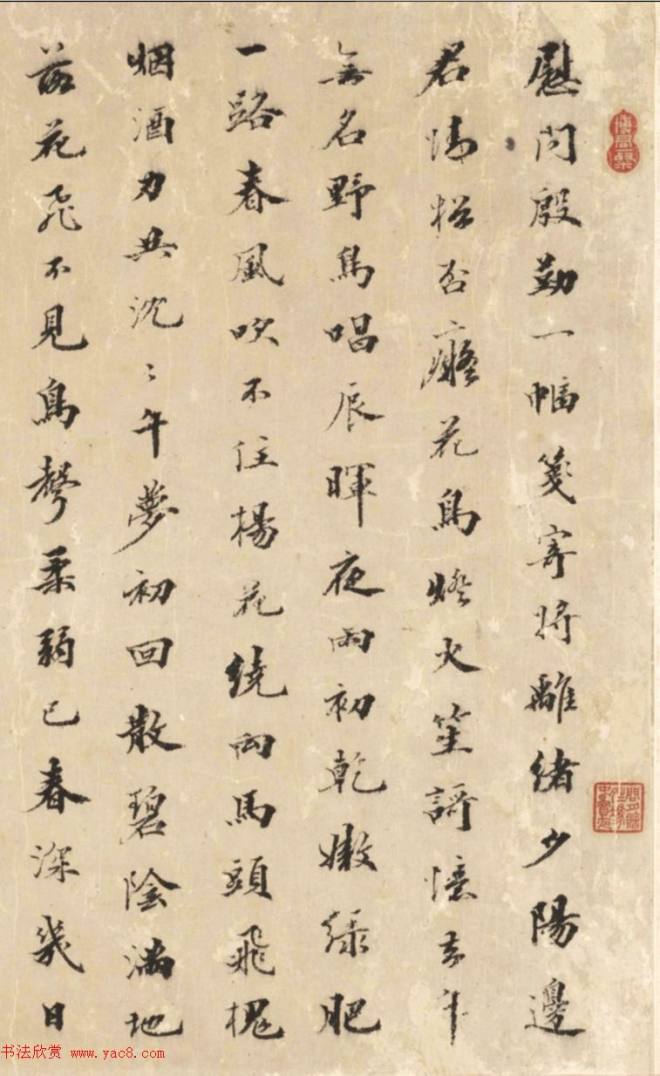 慰問殷勤一幅箋寄將離緒少陽邊
君情否癡花鳥燈火笙謌憶去年
無名野鳥唱辰暉夜雨初乾嫩綠肥
一路春風吹不住楊花繞向馬頭飛槐
烟酒力共沈〻午夢初回散碧陰滿地
落花飛不見鳥聲柔弱已春深幾日
书法欣赏 www.yac8.com